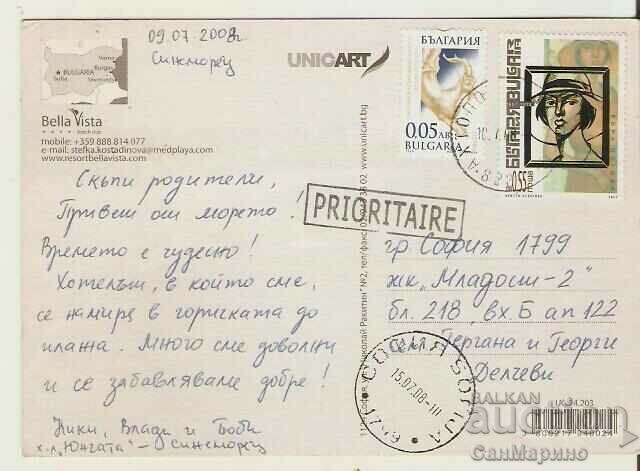 09.07.2008г
Синеморец
UNICART
БЪЛГАРИЯ
0.05лв
BULGARIA
БЪЛГАРИЯ BULGARIA
0.55
Varna
Burgas
BULGARIA
Sofia
Bella Vista
beach club
mobile: +359 888 814 077
e-mail: stefka.kostadinova@medplaya.com
www.resortbellavista.com
Скъпи родители,
Привет от морето!
Времето е чудесно!
Хотелът, в който сме,
се намира в горичката до
плажа. Много сме доволни
и се забавляваме добре!
Ники, Влади и Боби
х-л „Юнгата" – Синеморец
www.unicart.bg
PRIORITAIRE
гр София 1799
жк „Младост-2"
бл. 218, вх. Б ап 122
Сем. Гергана и Георги
Делчеви
СОФИЯ SOFIJA
15.07.08-
UK-34.203
БАЛКАН
аукцион
СанМарино